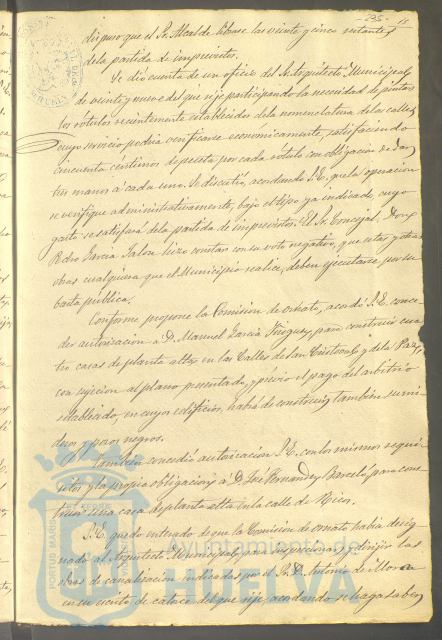 235
dispuso que el Sr. Alcalde librase las veinte y cinco restantes
de la partida de imprevistos.
Se dió cuenta de un oficio del Sr. Arquitecto Municipal
de veinte y nueve del que rije participando la necesidad de pintar
los rótulos recientemente establecidos de la nomenclatura de las calles
cuyo servicio podria verificarse economicamente, satisfaciendo
cincuenta céntimos de peseta por cada rótulo con obligacion de dar
tres manos á cada uno. Se discutió, acordando S.E. que la operacion
se verifique administrativamente, bajo el tipo ya indicado, cuyo
gasto se satisfará de la partida de imprevistos. El Sr. Concejal Don
Pedro Garcia Jalon hizo constar con su voto negativo, que estas y otras
obras cualquiera que el Municipio realice, deben ejecutarse por su
basta pública.
Conforme propone la Comision de ornato, acordó S.E. conce
der autorizacion á D. Manuel Garcia para construir cua
tro casas de planta alta en las Calles de San Cristobal y de la Paz,
con sujecion al plano presentado, y prévio el pago del arbitrio
establecido, en cuyos edificios, habrá de construir tambien sumi
deros y pozos negros.
Tambien concedió autorizacion S.E. con los mismos requi
sitos y la propia obligacion, á D. José Fernandez Barceló, para cons
truir una casa de planta alta en la calle de Rico.
S.E. quedó enterado de que la Comision de ornato habia desig
nado al Arquitecto Municipal, para inspeccionar y dirijir las
obras de canalizacion indicadas por el Sr. D. Antonio de Mora
en su escrito de catorce del que rije, acordando se haga saber
Ayuntamiento de
HUELVA
PORTUS MARIS